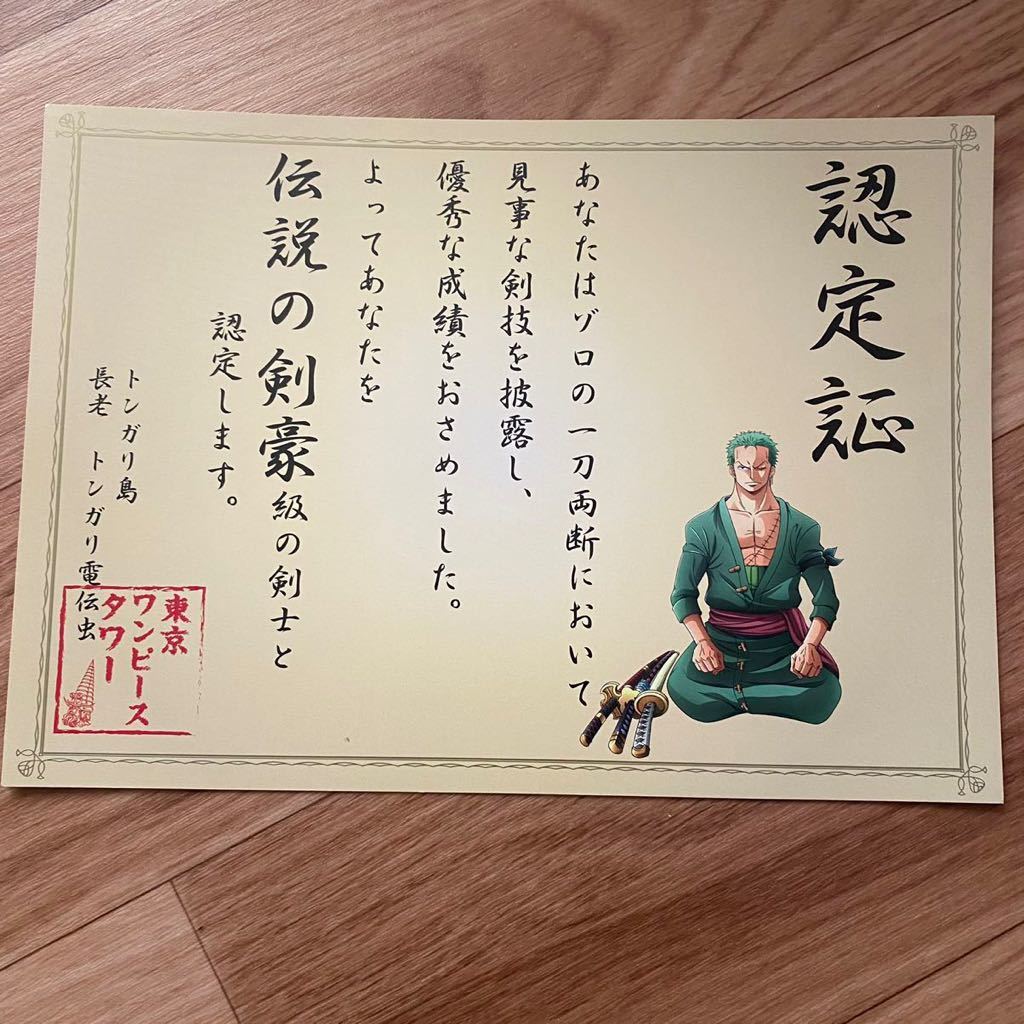 認定証
あなたはゾロの一刀両断において
見事な剣技を披露し、
優秀な成績をおさめました。
よってあなたを
伝説の剣豪級の剣士と
認定します。
トンガリ島
長老 トンガリ電伝虫
東京
ワンピース
タワー